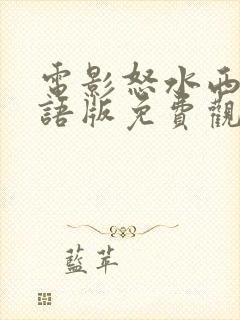 電影怒水西
語版免費觀
藍苹